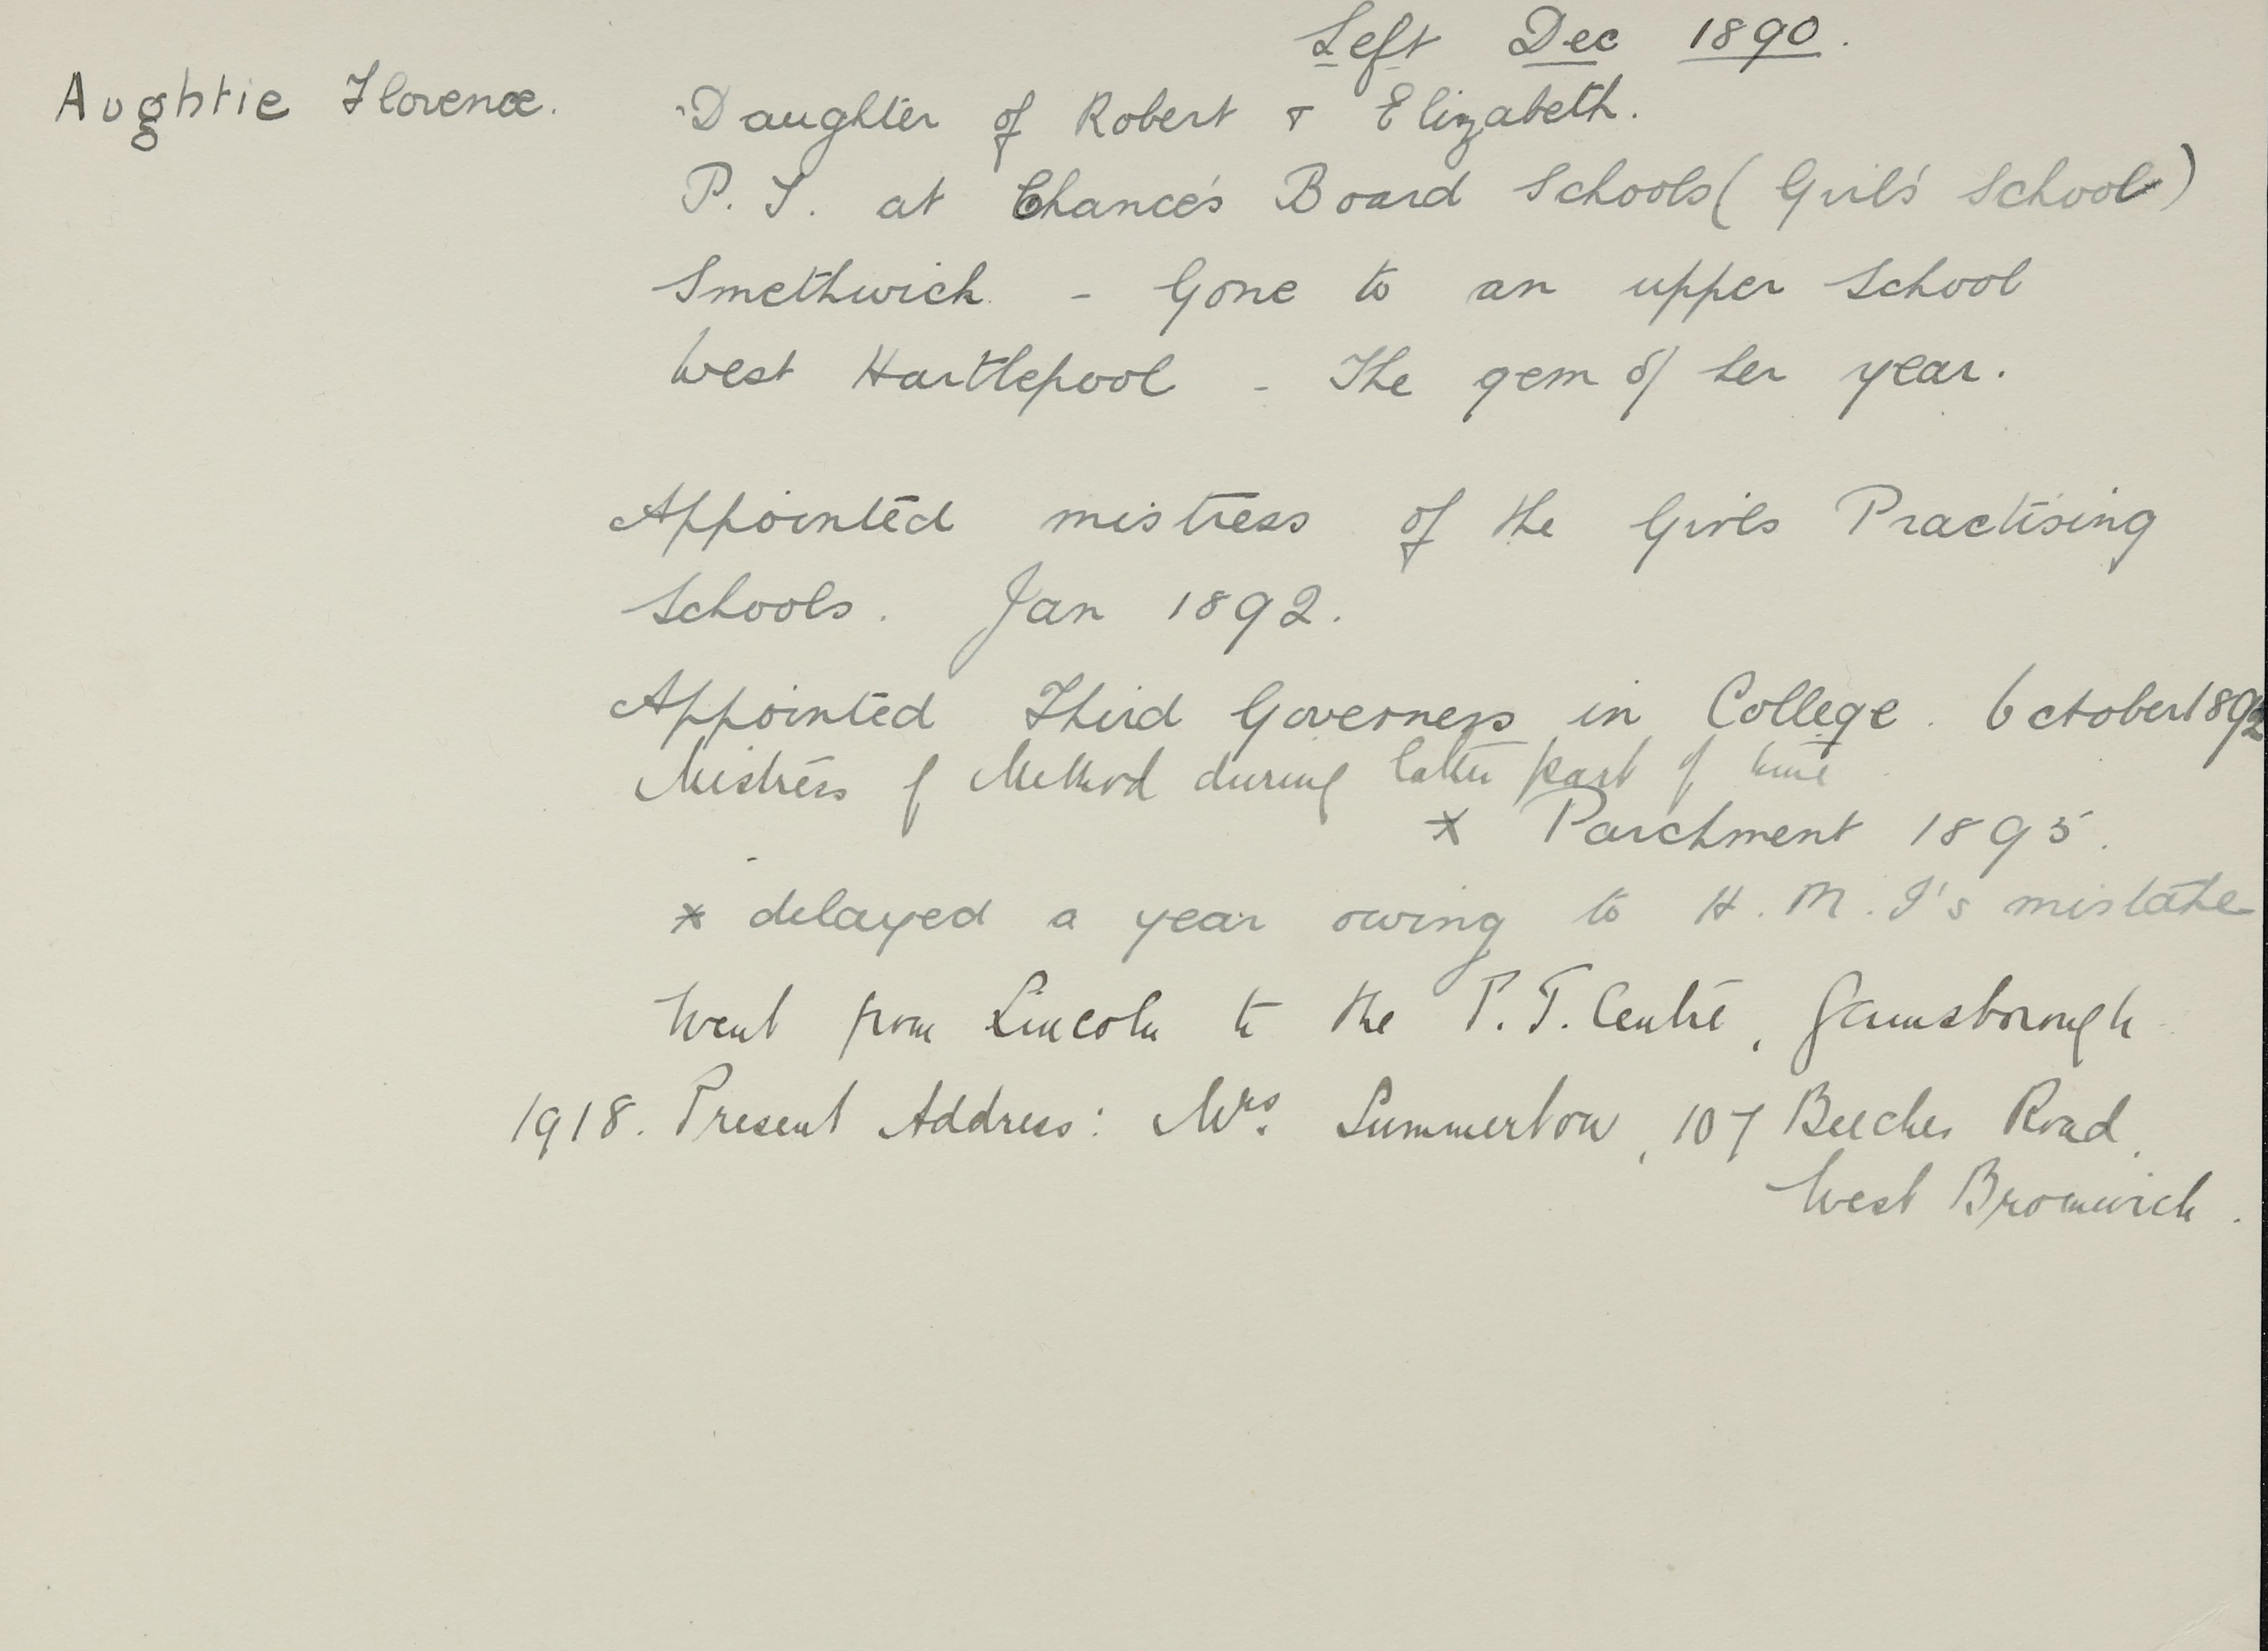 Left Dec 1890.
Aughtie Florence. Daughter of Robert & Elizabeth.
P. T. at Chance's Board Schools (Girls' School)
Smethwick - Gone to an upper School
West Hartlepool - The gem of her year.
Appointed mistress of the Girls Practising
Schools. Jan 1892.
Appointed Third Governess in College. October 1892
Mistress of Method during latter part of time
x Parchment 1895.
x delayed a year owing to H. M. I's mistake
Went from Lincoln to the P. T. Centre, Gainsborough
1918. Present Address: Mrs. Summerton, 107 Beeches Road,
West Bromwich.